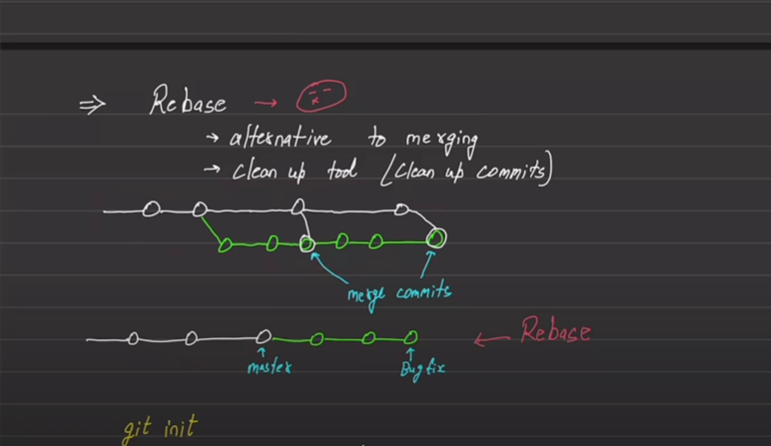 ⇒ Rebase →
→ alternative to merging
→ clean up tool (Clean up commits)
merge commits
← Rebase
master
Bugfix
git init